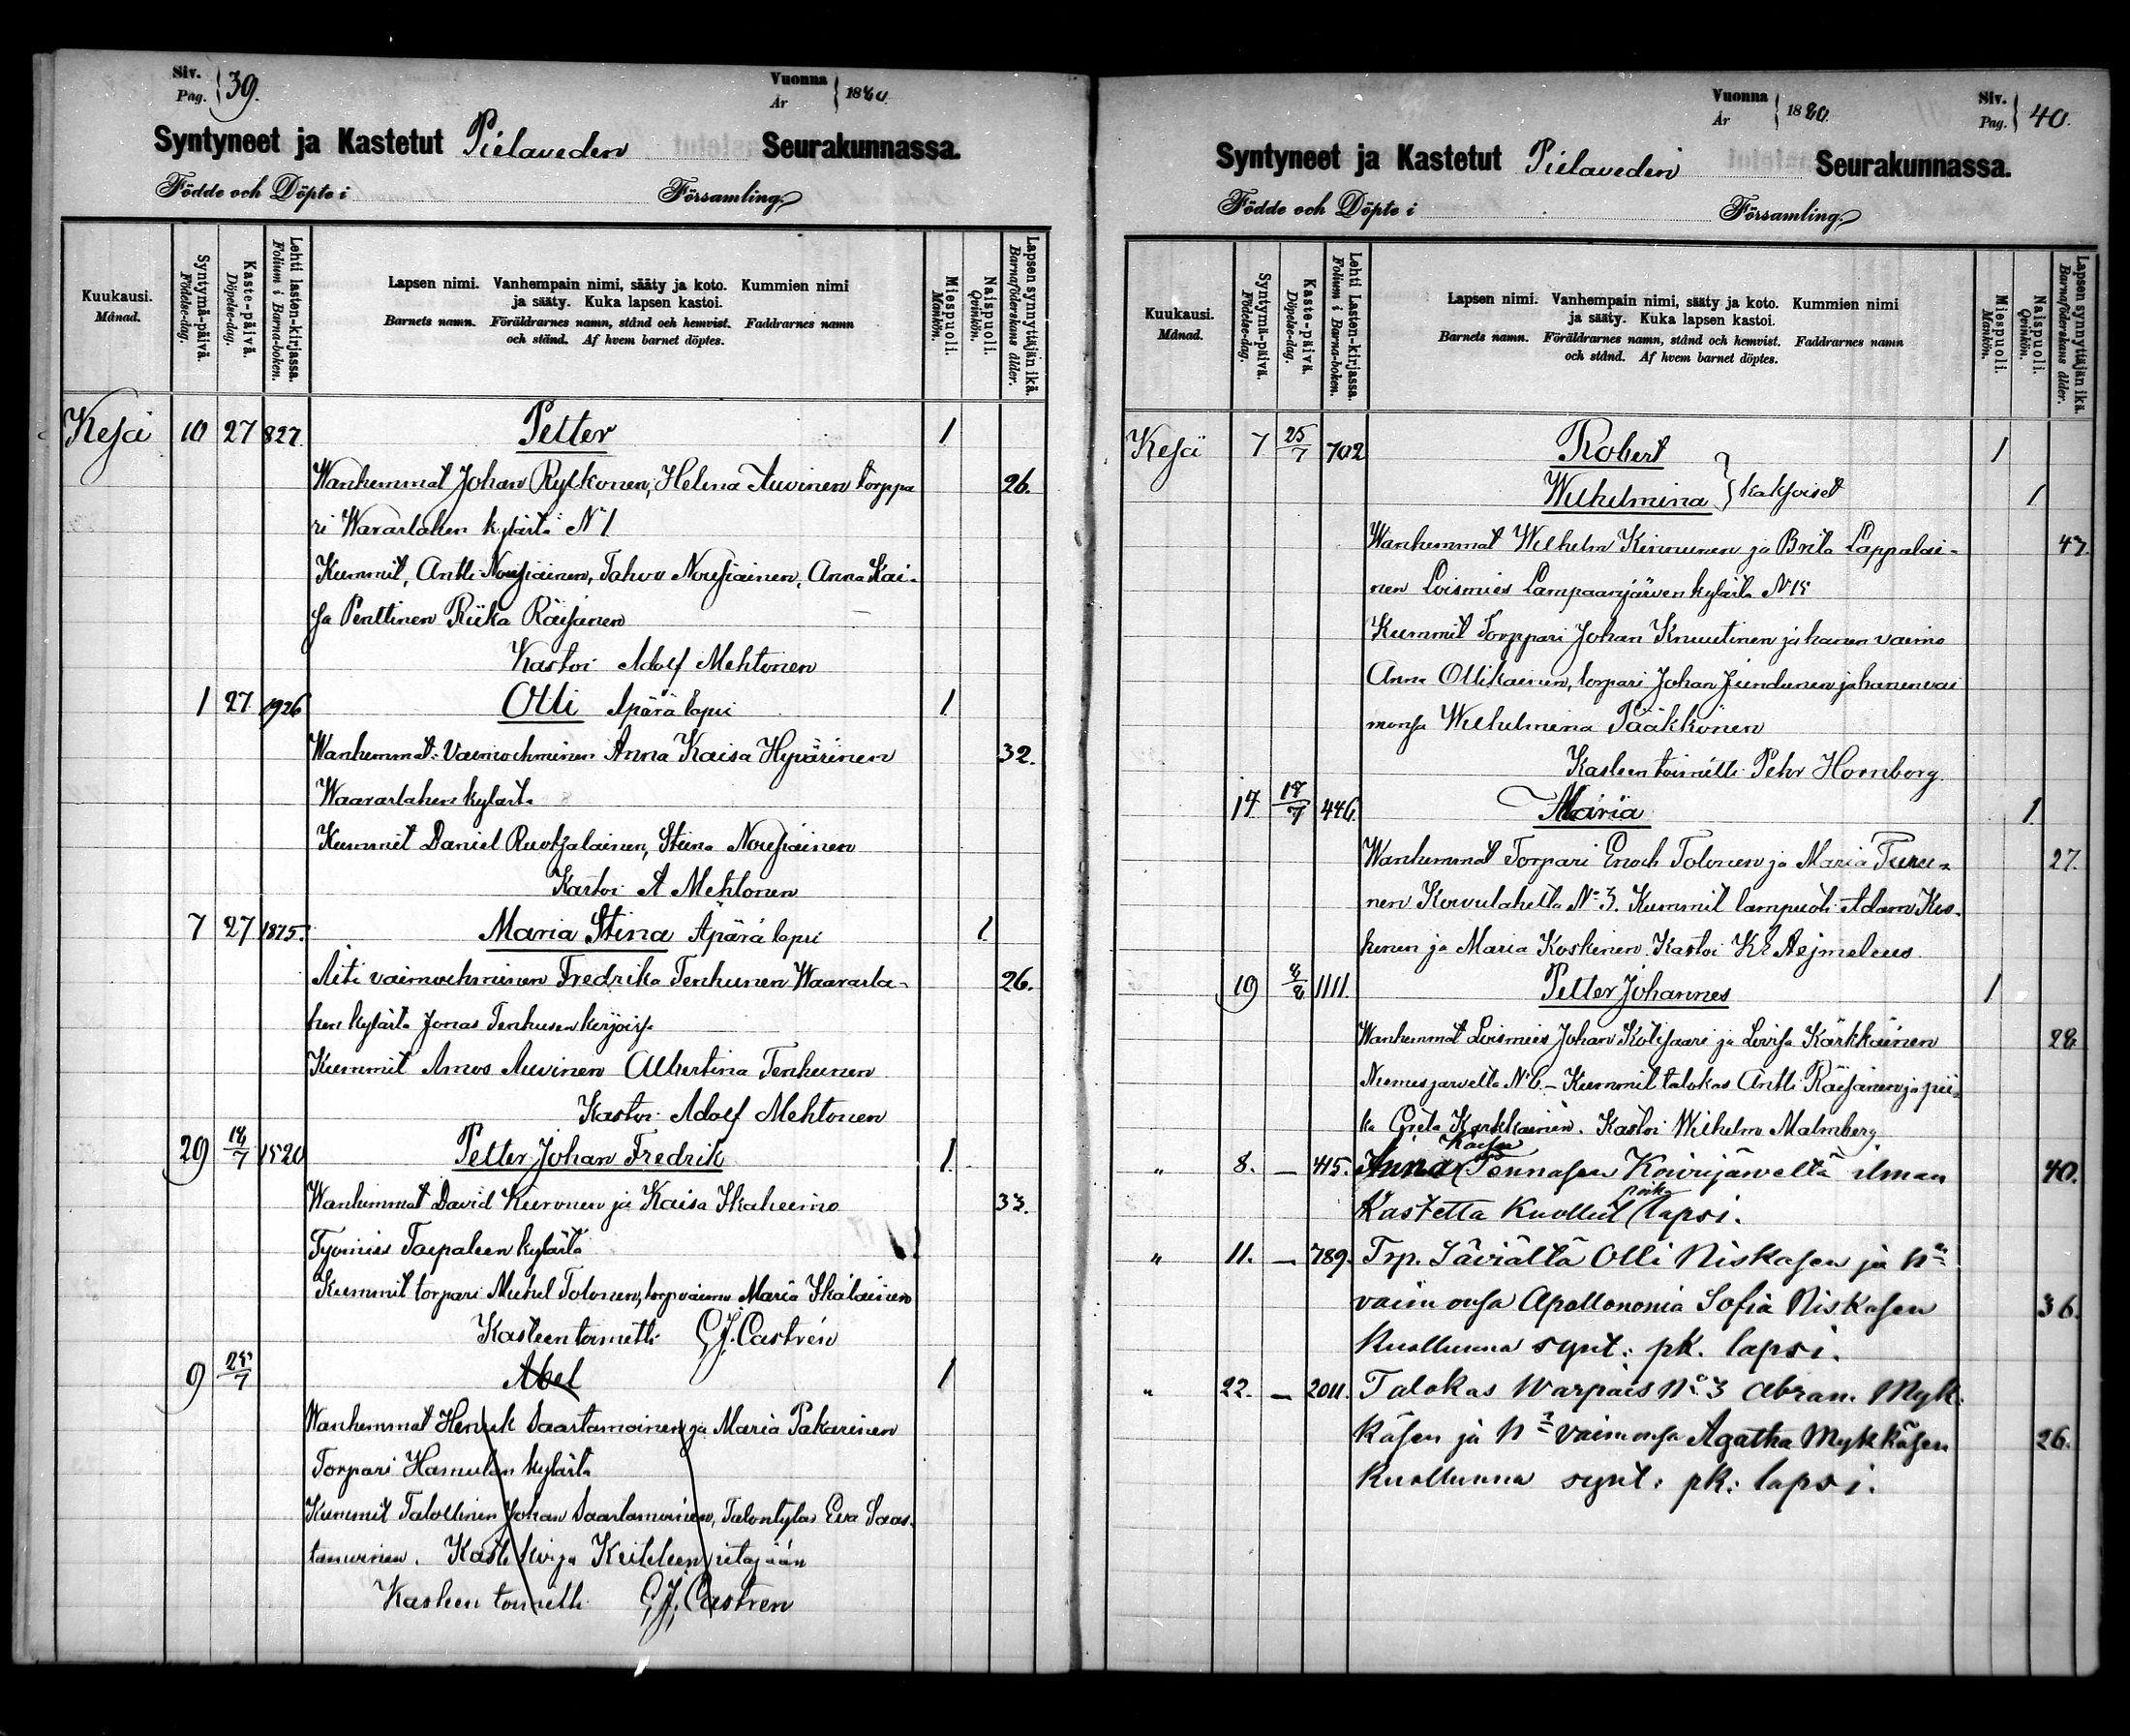 Siv.
Pag. 39.
Vuonna
År 1880.
Syntyneet ja Kastetut Pielaveden Seurakunnassa.
Födde och Döpte i Församling.
Kuukausi.
Månad.
Syntymä-päivä.
Födelse-dag.
Kaste-päivä.
Döpelse-dag.
Lehti lasten-kirjassa.
Folium i Barna-boken.
Lapsen nimi. Vanhempain nimi, sääty ja koto. Kummien nimi
ja sääty. Kuka lapsen kastoi.
Barnets namn. Föräldrarnes namn, stånd och hemvist. Faddrarnes namn
och stånd. Af hvem barnet döptes.
Miespuoli.
Mankön.
Naispuoli.
Qvinkön.
Lapsen synnyttäjän ikä.
Barnaföderskans ålder.
Kesä 10 27 827. Petter 1
Wanhemmat Johan Rytkönen, Helena Auvinen torppa 26.
ri Wavaslahen kylästä N 1
Kummit, Antti Nousiainen, Tahvo Nousiainen, Anna Kai-
sa Penttinen Riika Räisänen
Kastoi Adolf Mehtonen
1 27. 1926 Olli Äpärä lapsi 1.
Wanhemmat: Vaimoehminen Anna Kaisa Hyvärinen 32.
Waavaslahen kylästä
Kummit Daniel Ruotsalainen, Stiina Nousiainen
Kastoi A Mehtonen
7 27 1875. Maria Stina Äpärä lapsi 1.
Äiti vaimoehminen Fredrika Tenhunen Waavasla- 26.
hen kylästä Jonas Tenhusen kirjoissa
Kummit Amos Auvinen Albertina Tenhunen
Kastoi Adolf Mehtonen
29 18/7 1520 Petter Johan Fredrik 1.
Wanhemmat David Kiuronen ja Kaisa Ikäheimo 33.
Työmies Taipaleen kylästä
Kummit torpari Mikel Tolonen, torp vaimo Maria Ikäläinen
Kasteen toimitti G.J. Castrén
9 25/7 Abel 1
Wanhemmat Henrik Saastamoinen ja Maria Pakarinen
Torpari Hamulan kylästä
Kummit Talollinen Johan Saastamoinen, Talontytär Eva Saas-
tamoinen. Kaste kirja Keiteleen pitäjään
Kasteen toimitti G.J. Castren
Vuonna
År 1880.
Siv.
Pag. 40.
Syntyneet ja Kastetut Pielaveden Seurakunnassa.
Födde och Döpte i Församling.
Kuukausi.
Månad.
Syntymä-päivä.
Födelse-dag.
Kaste-päivä.
Döpelse-dag.
Lehti Lasten-kirjassa.
Folium i Barna-boken.
Lapsen nimi. Vanhempain nimi, sääty ja koto. Kummien nimi
ja sääty. Kuka lapsen kastoi.
Barnets namn. Föräldrarnes namn, stånd och hemvist. Faddrarnes namn
och stånd. Af hvem barnet döptes.
Miespuoli.
Mankön.
Naispuoli.
Qvinkön.
Lapsen synnyttäjän ikä.
Barnaföderskans ålder.
Kesä 7 25/7 702 Robert 1
Wilhelmina } kaksoiset 1
Wanhemmat Wilhelm Kinnunen ja Brita Lappalai- 47.
nen Loismies Lampaanjärven kylästä N 15
Kummit Torppari Johan Knuutinen ja hänen vaimo
Anna Ollikainen, torpari Johan Jundunen ja hänen vai
monsa Wilhelmina Pääkkönen
Kasteen toimitti Pehr Hornborg
17. 18/7 446. Maria 1.
Wanhemmat Torpari Enoch Tolonen ja Maria Turu- 27.
nen Koivulahelta No 3. Kummit lampuoti Adam Kos-
kinen ja Maria Koskinen. Kastoi K E Aejmeleus
19 8/8 1111. Petter Johannes 1
Wanhemmat Loismies Johan Kotisaari ja Lovisa Kärkkäinen 28
Niemisjärveltä N 6. – Kummit talokas Antti Räisänen ja pii-
ka Greta Kärkkäinen. Kastoi Wilhelm Malmberg
" 8. – 415. Anna Kaisa Tennasen Koivujärveltä ilman 40.
Kastetta Kuollut poika lapsi.
" 11. – 789. Trp. Säviältä Olli Niskasen ja hn
vaimonsa Apollononia Sofia Niskasen 36.
Kuolluna synt: pk. lapsi.
" 22. – 2011. Talokas Warpais No 3 Abram Myk-
käsen ja hn vaimonsa Agatha Mykkäsen 26.
Kuolluna synt: pk: lapsi.